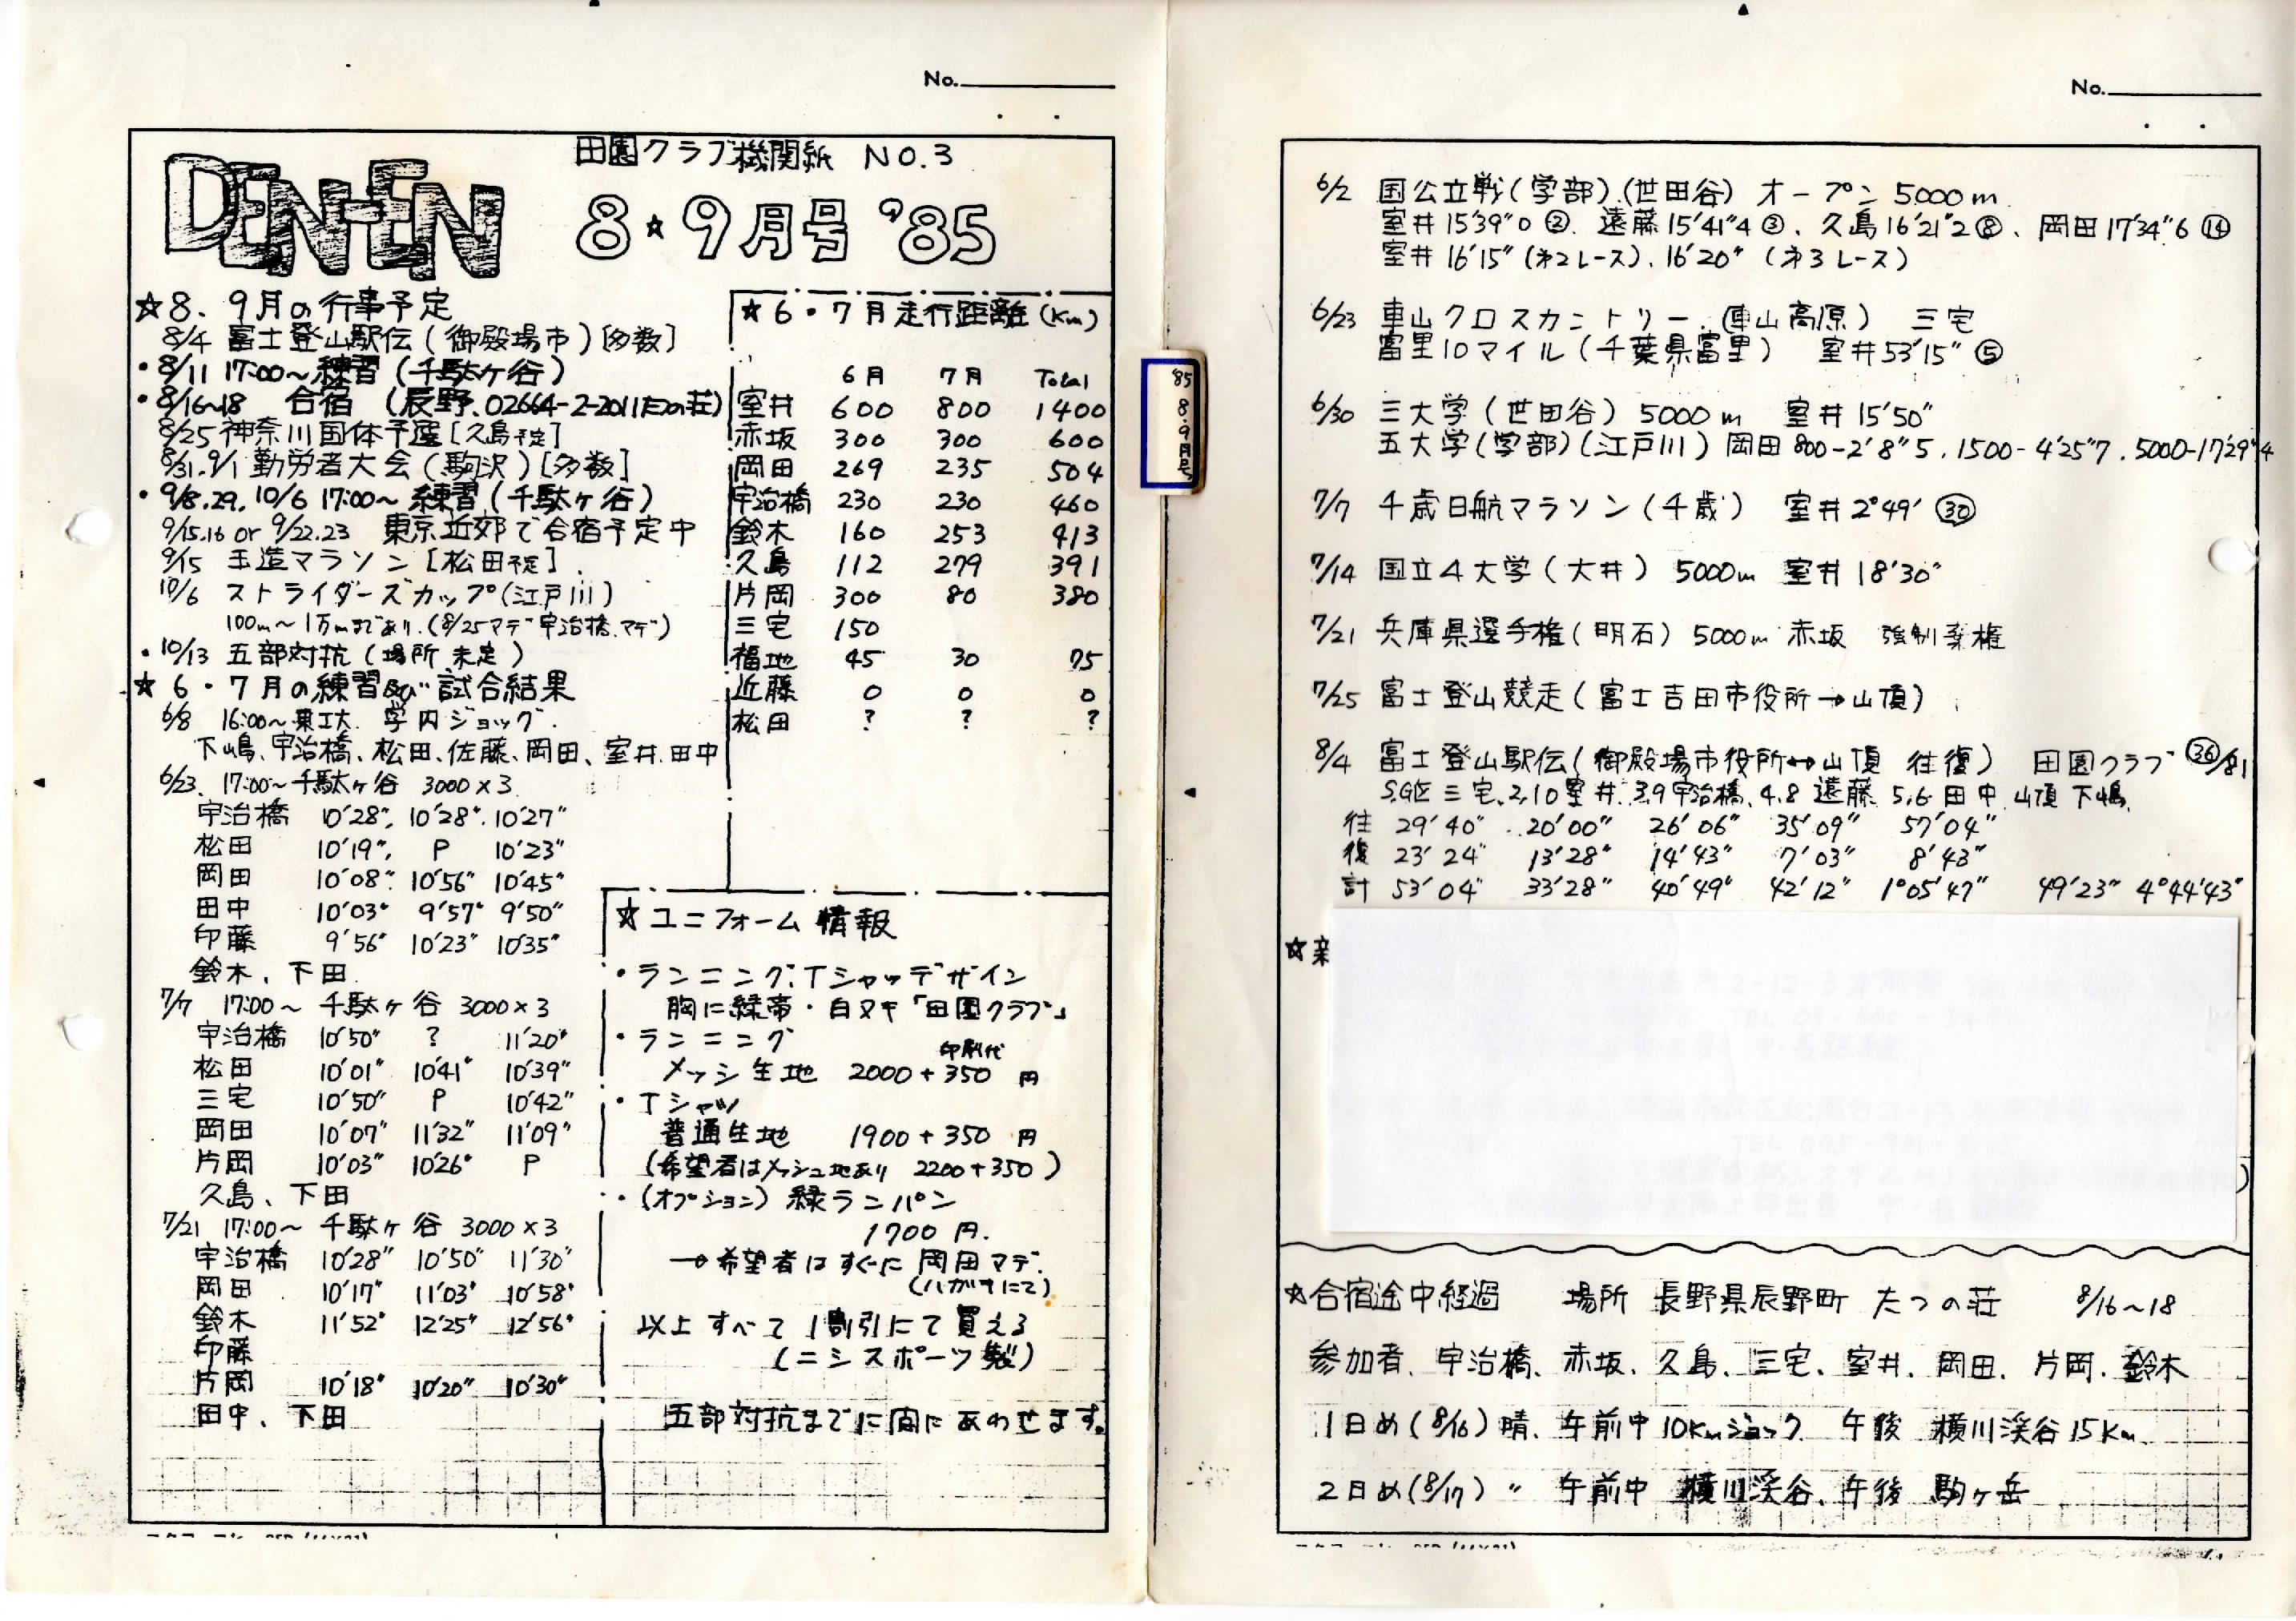 No.
田園クラブ機関紙 NO.3
DEN-EN
8☆9月号 '85
☆8.9月の行事予定
8/4 富士登山駅伝(御殿場市)[多数]
・8/11 17:00〜練習(千駄ヶ谷)
・8/16〜18 合宿 (辰野.02664-2-2011たつの荘)
8/25 神奈川国体予選[久島予定]
8/31.9/1 勤労者大会(駒沢)[多数]
・9/8.29.10/6 17:00〜 練習(千駄ヶ谷)
9/15.16 or 9/22.23 東京近郊で合宿予定中
9/15 玉造マラソン[松田予定].
10/6 ストライダーズカップ(江戸川)
100m〜1万mまであり.(8/25マデ宇治橋マデ)
・10/13 五部対抗(場所 未定)
☆6・7月の練習及び試合結果
6/8 16:00〜東工大 学内ジョッグ.
下嶋、宇治橋、松田、佐藤、岡田、室井.田中
6/23 17:00〜千駄ヶ谷 3000×3
宇治橋 10'28". 10'28". 10'27"
松田 10'19". P 10'23"
岡田 10'08". 10'56" 10'45"
田中 10'03" 9'57" 9'50"
印藤 9'56" 10'23" 10'35"
鈴木、下田.
7/7 17:00〜 千駄ヶ谷 3000×3
宇治橋 10'50" ? 11'20"
松田 10'01" 10'41" 10'39"
三宅 10'50" P 10'42"
岡田 10'07" 11'32" 11'09"
片岡 10'03" 10'26" P
久島、下田
7/21 17:00〜 千駄ヶ谷 3000×3
宇治橋 10'28" 10'50" 11'30"
岡田 10'17" 11'03" 10'58"
鈴木 11'52" 12'25" 12'56"
印藤
片岡 10'18" 10'20" 10'30"
田中、下田
☆6・7月走行距離(Km)
6月 7月 Total
室井 600 800 1400
赤坂 300 300 600
岡田 269 235 504
宇治橋 230 230 460
鈴木 160 253 413
久島 112 279 391
片岡 300 80 380
三宅 150
福地 45 30 75
近藤 0 0 0
松田 ? ? ?
☆ユニフォーム情報
・ランニング.Tシャツデザイン
胸に緑帯・白ヌキ「田園クラブ」
・ランニング
印刷代
メッシ生地 2000+350 円
・Tシャツ
普通生地 1900+350 円
(希望者はメッシュ地あり 2200+350)
・(オプション) 緑ランパン
1700円.
→希望者はすぐに岡田マデ.
(ハガキにて)
以上すべて1割引にて買える
(ニシスポーツ製)
五部対抗までに間にあわせます。
'85 8・9月号
No.
6/2 国公立戦(学部)(世田谷) オープン 5000m
室井15'39"0②. 遠藤15'41"4③、久島16'21"2⑧、岡田17'34"6⑭
室井16'15"(オ2レース).16'20"(オ3レース)
6/23 車山クロスカントリー.(車山高原) 三宅
富里10マイル(千葉県富里) 室井53'15"⑤
6/30 三大学(世田谷) 5000m 室井15'50"
五大学(学部)(江戸川) 岡田800-2'8"5.1500-4'25"7.5000-17'29"4
7/7 千歳日航マラソン(千歳) 室井2°49' ㉚
7/14 国立4大学(大井) 5000m 室井18'30"
7/21 兵庫県選手権(明石) 5000m 赤坂 強制棄権
7/25 富士登山競走(富士吉田市役所→山頂)
8/4 富士登山駅伝(御殿場市役所↔山頂 往復) 田園クラブ ㊱/81
三宅.2,10室井.3,9宇治橋.4,8遠藤 5,6田中 山頂下嶋
往 29'40" 20'00" 26'06" 35'09" 57'04"
復 23'24" 13'28" 14'43" 7'03" 8'43"
計 53'04" 33'28" 40'49" 42'12" 1°05'47" 49'23" 4°44'43"
☆新
☆合宿途中経過 場所 長野県辰野町 たつの荘 8/16〜18
参加者、宇治橋、赤坂、久島、三宅、室井、岡田、片岡、鈴木
1日め(8/16)晴、午前中10Kmジョック 午後 横川渓谷15Km.
2日め(8/17) 〃 午前中 横川渓谷、午後 駒ヶ岳